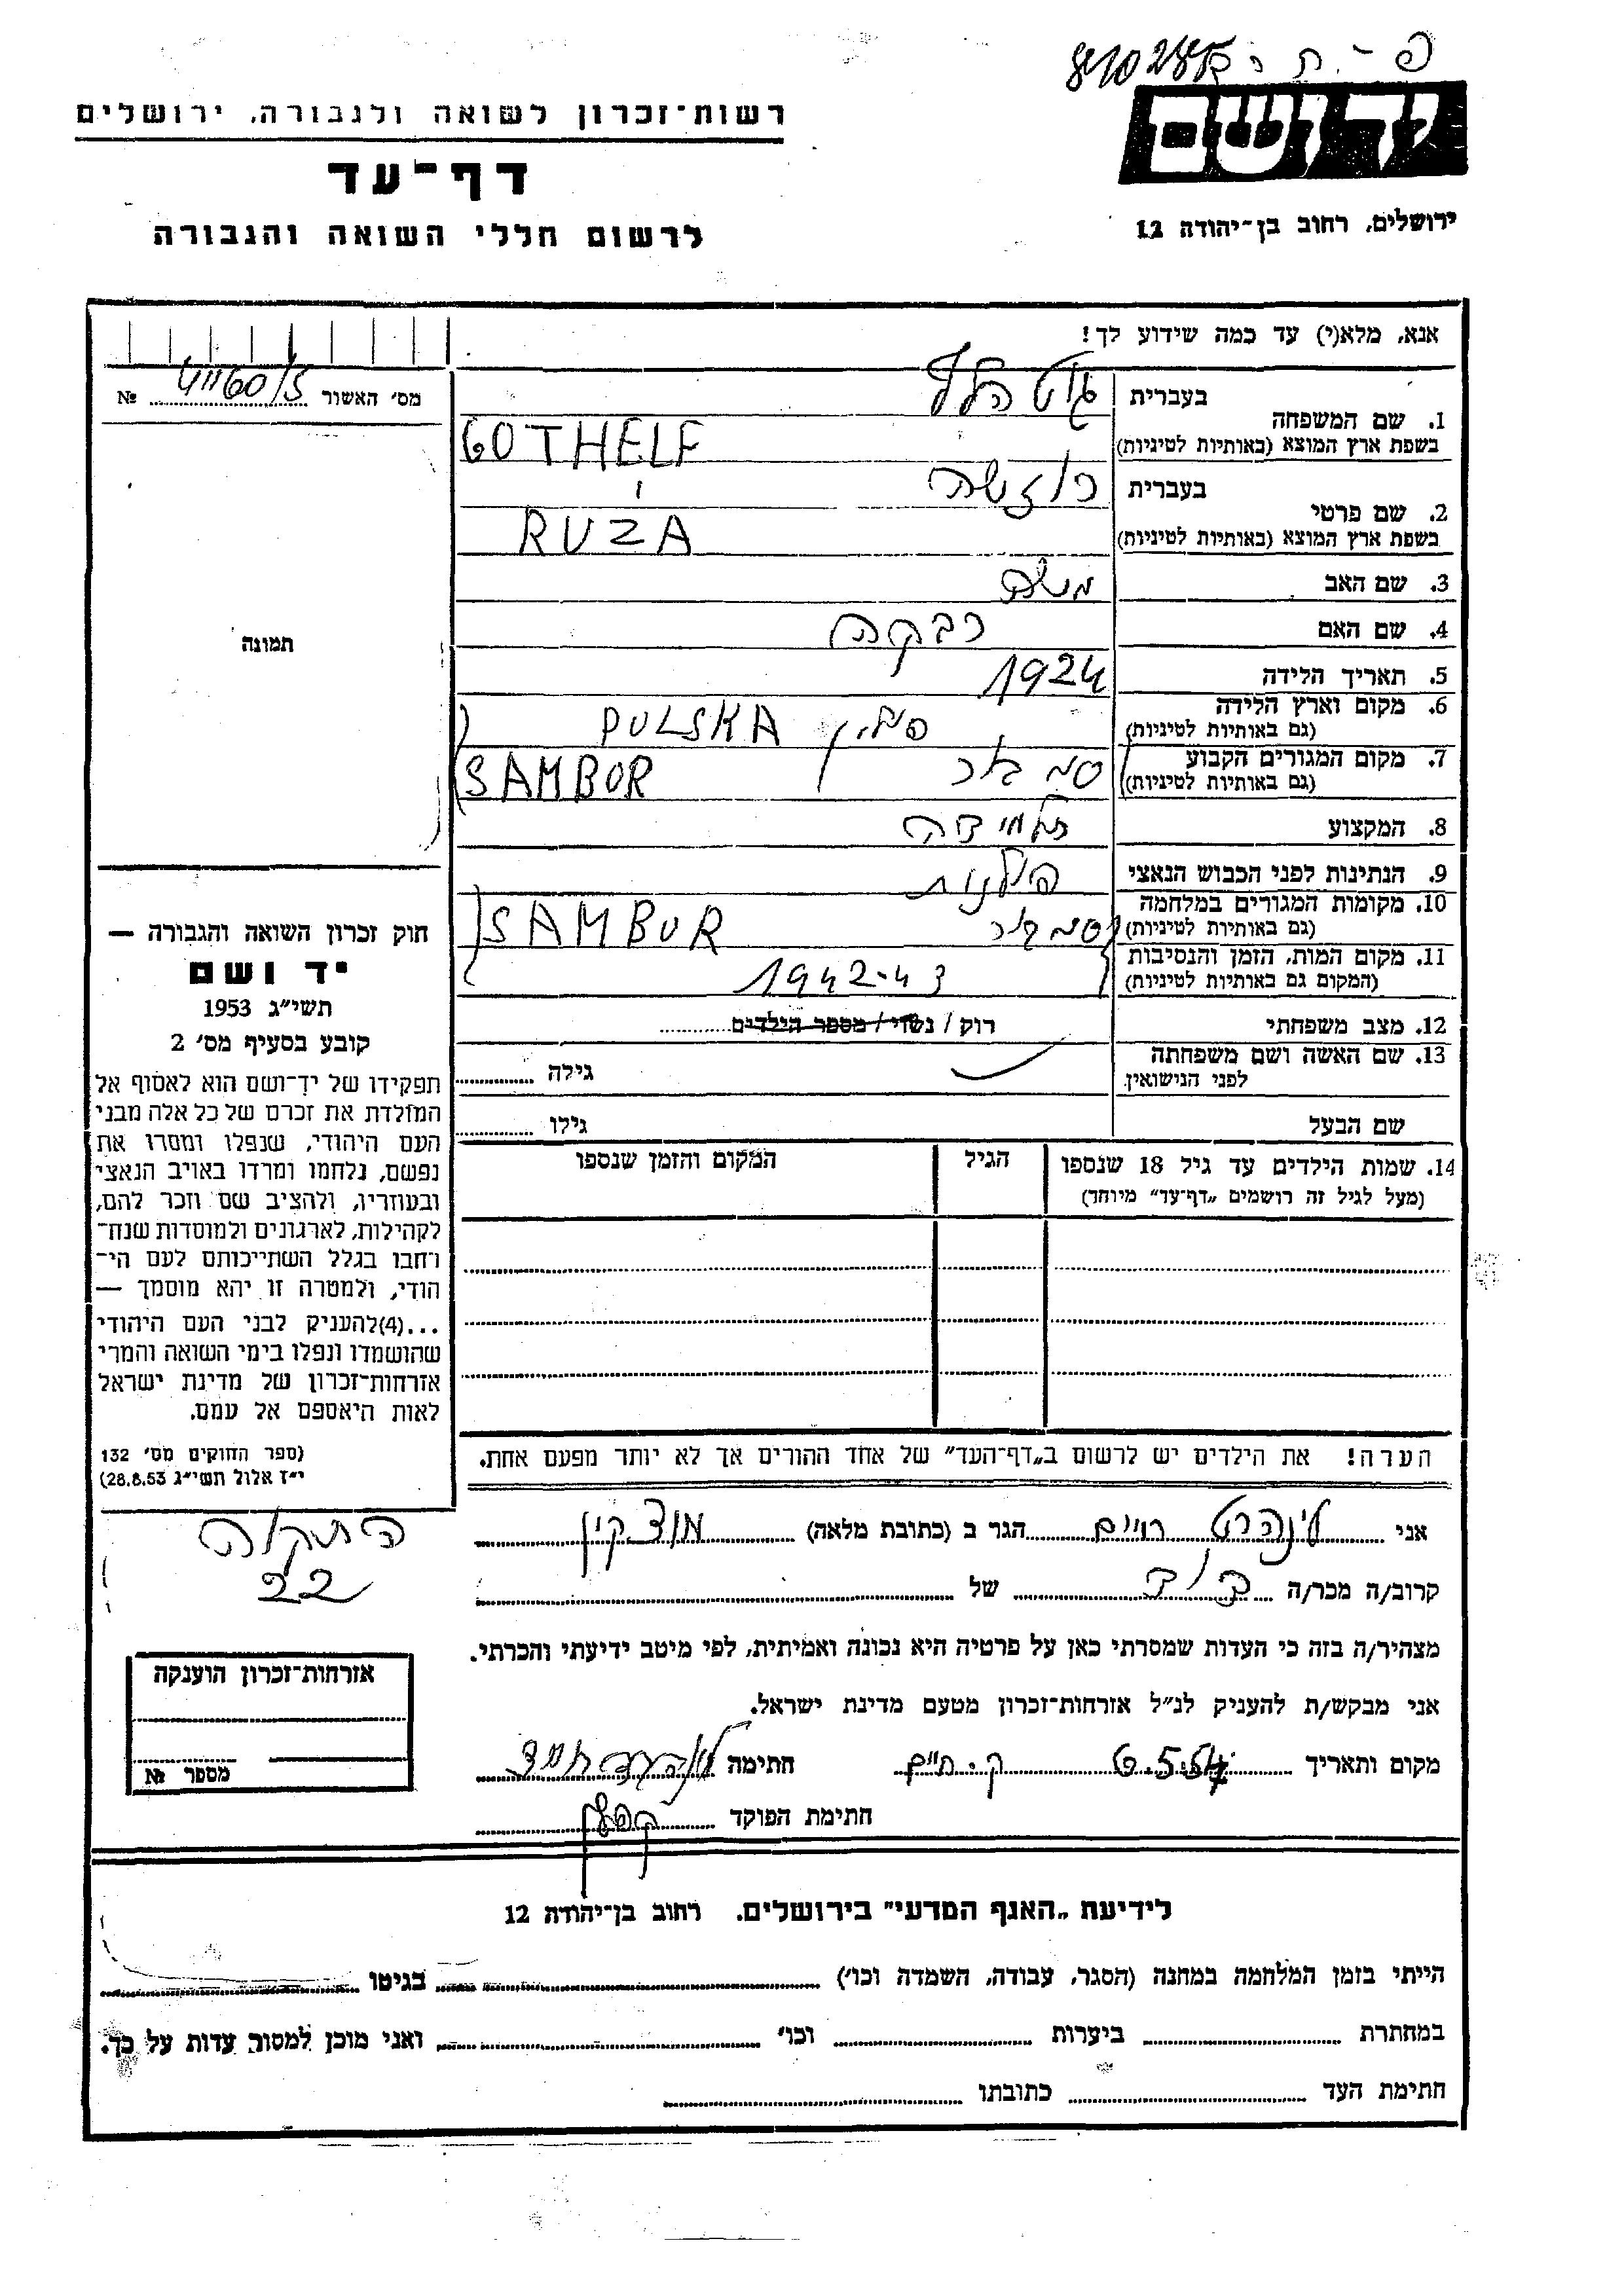 פ-ח ר 81028
יד ושם
ירושלים, רחוב בן-יהודה 12
רשות-זכרון לשואה ולגבורה, ירושלים
דף-עד
לרשום חללי השואה והגבורה
אנא, מלא(י) עד כמה שידוע לך!
מס' האשור № 41160/5
תמונה
1. שם המשפחה בעברית גוטהלף
בשפת ארץ המוצא (באותיות לטיניות) GOTHELF
2. שם פרטי בעברית רוזשה
בשפת ארץ המוצא (באותיות לטיניות) RUŻA
3. שם האב משה
4. שם האם רבקה
5. תאריך הלידה 1924
6. מקום וארץ הלידה פולין PULSKA
(גם באותיות לטיניות)
7. מקום המגורים הקבוע סמבור SAMBOR
(גם באותיות לטיניות)
8. המקצוע תלמידה
9. הנתינות לפני הכבוש הנאצי פולנית
10. מקומות המגורים במלחמה סמבור SAMBUR
(גם באותיות לטיניות)
11. מקום המות, הזמן והנסיבות 1942-43
(המקום גם באותיות לטיניות)
12. מצב משפחתי רוק / נשוי / מספר הילדים
13. שם האשה ושם משפחתה גילה
לפני הנישואין
שם הבעל גילו
14. שמות הילדים עד גיל 18 שנספו הגיל המקום והזמן שנספו
(מעל לגיל זה רושמים „דף-עד" מיוחד)
הערה! את הילדים יש לרשום ב„דף-העד" של אחד ההורים אך לא יותר מפעם אחת.
חוק זכרון השואה והגבורה —
יד ושם
תשי"ג 1953
קובע בסעיף מס' 2
תפקידו של יד-ושם הוא לאסוף אל
המולדת את זכרם של כל אלה מבני
העם היהודי, שנפלו ומסרו את
נפשם, נלחמו ומרדו באויב הנאצי
ובעוזריו, ולהציב שם וזכר להם,
לקהילות, לארגונים ולמוסדות שנח-
רחבו בגלל השתייכותם לעם הי-
הודי, ולמטרה זו יהא מוסמך —
...(4)להעניק לבני העם היהודי
שהושמדו ונפלו בימי השואה והמרי
אזרחות-זכרון של מדינת ישראל
לאות היאספם אל עמם.
(ספר החוקים מס' 132
י"ז אלול תשי"ג 28.8.53)
אני לינהרט חיים הגר ב (כתובת מלאה) מוצקין
התקוה
22
קרוב/ה מכר/ה דוד של
מצהיר/ה בזה כי העדות שמסרתי כאן על פרטיה היא נכונה ואמיתית, לפי מיטב ידיעתי והכרתי.
אני מבקש/ת להעניק לנ"ל אזרחות-זכרון מטעם מדינת ישראל.
מקום ותאריך ק. חיים חתימה
חתימת הפוקד
אזרחות-זכרון הוענקה
מספר №
לידיעת „האגף המדעי" בירושלים. רחוב בן-יהודה 12
הייתי בזמן המלחמה במחנה (הסגר, עבודה, השמדה וכו') בגיטו
במחתרת ביערות וכו' ואני מוכן למסור עדות על כך.
חתימת העד כתובתו